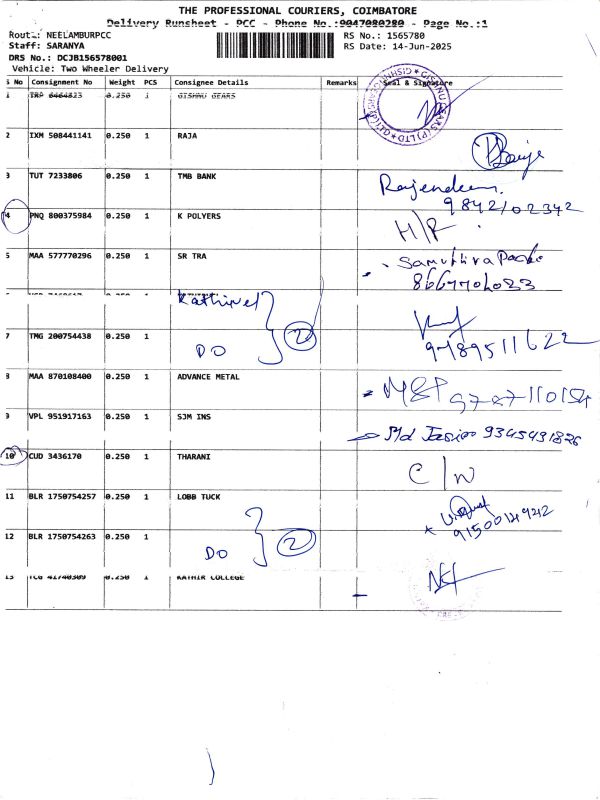 THE PROFESSIONAL COURIERS, COIMBATORE
Delivery Runsheet - PCC - Phone No.:9047080280 - Page No.:1
Route: NEELAMBURPCC RS No.: 1565780
Staff: SARANYA RS Date: 14-Jun-2025
DRS No.: DCJB156578001
Vehicle: Two Wheeler Delivery
S No Consignment No Weight PCS Consignee Details Remarks Seal & Signature
1 TRP 6464823 0.250 1 GISHNU GEARS
2 IXM 508441141 0.250 1 RAJA
3 TUT 7233806 0.250 1 TMB BANK
9842102342
4 PNQ 800375984 0.250 1 K POLYERS H/R
5 MAA 577770296 0.250 1 SR TRA
Kathirvel
7 TMG 200754438 0.250 1 DO 2 9489511622
8 MAA 870108400 0.250 1 ADVANCE METAL
9 VPL 951917163 0.250 1 SJM INS 9345491826
10 CUD 3436170 0.250 1 THARANI C/N
11 BLR 1750754257 0.250 1 LOBB TUCK
12 BLR 1750754263 0.250 1 DO 2
13 TCG 41740309 0.250 1 KATHIR COLLEGE